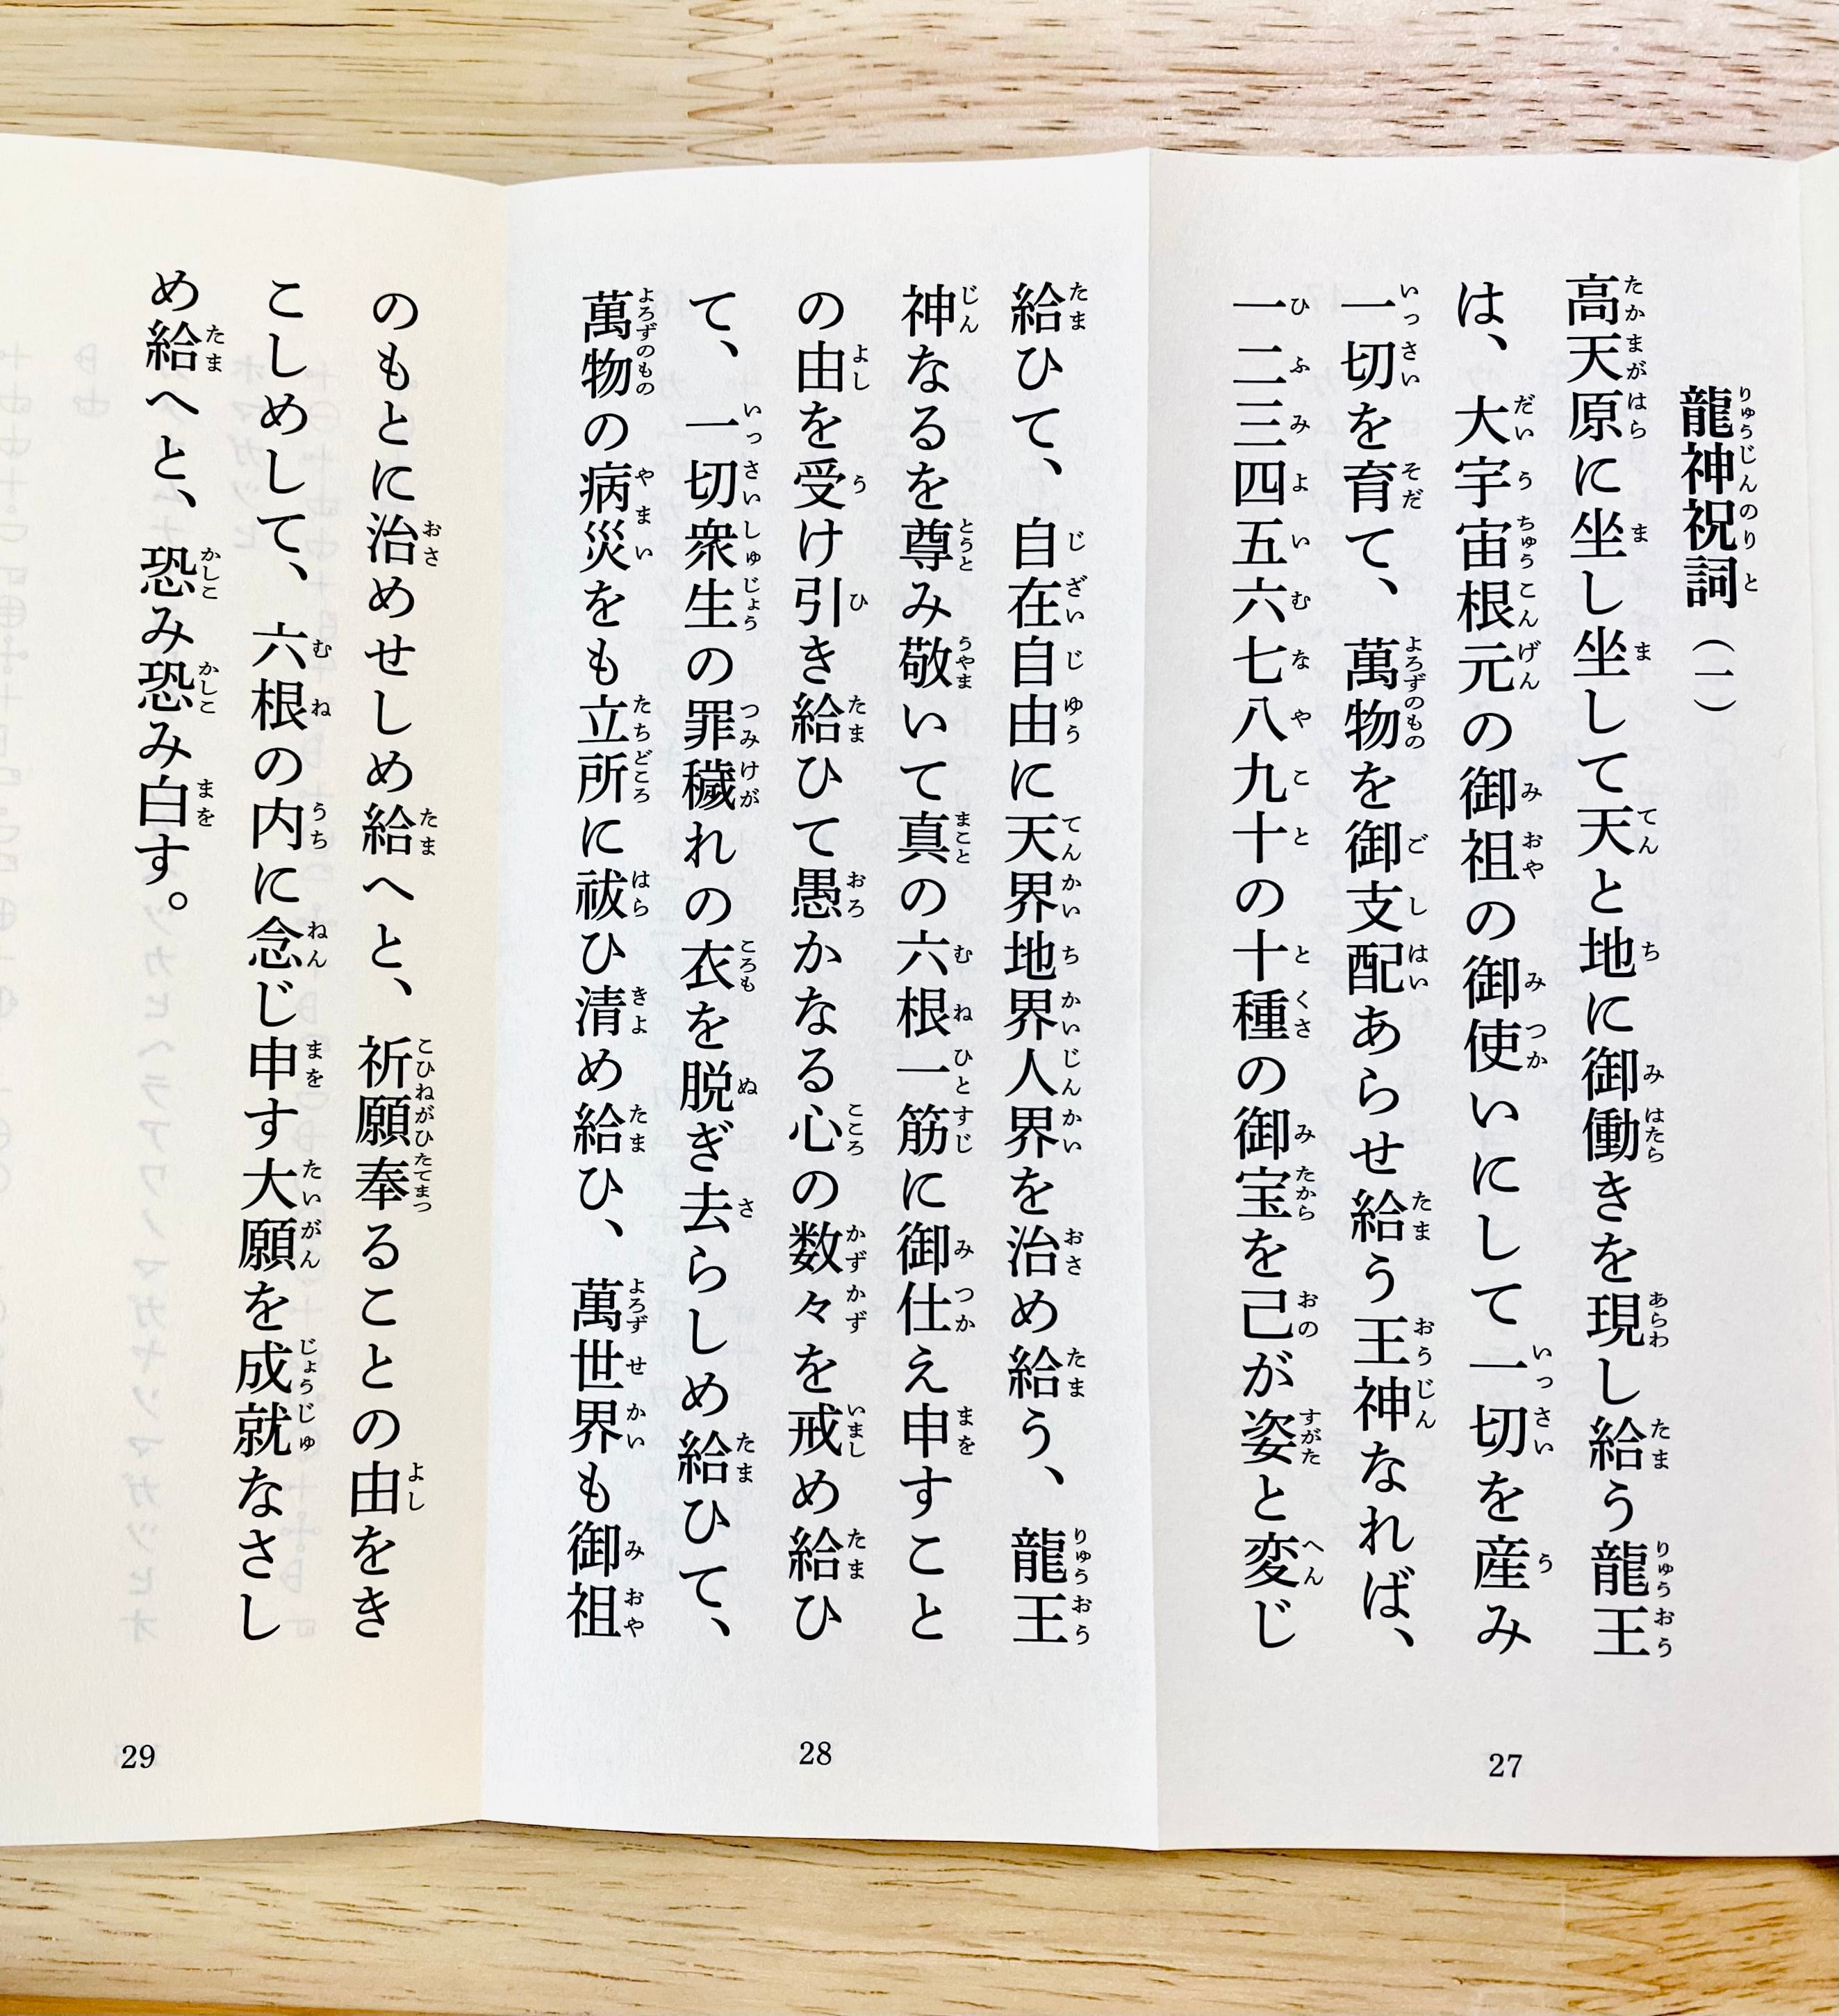 龍神祝詞（一）
高天原に坐し坐して天と地に御働きを現し給う龍王
は、大宇宙根元の御祖の御使いにして一切を産み
一切を育て、萬物を御支配あらせ給う王神なれば、
一二三四五六七八九十の十種の御宝を己が姿と変じ
27
給ひて、自在自由に天界地界人界を治め給う、龍王
神なるを尊み敬いて真の六根一筋に御仕え申すこと
の由を受け引き給ひて愚かなる心の数々を戒め給ひ
て、一切衆生の罪穢れの衣を脱ぎ去らしめ給ひて、
萬物の病災をも立所に祓ひ清め給ひ、萬世界も御祖
28
のもとに治めせしめ給へと、祈願奉ることの由をき
こしめして、六根の内に念じ申す大願を成就なさし
め給へと、恐み恐み白す。
29